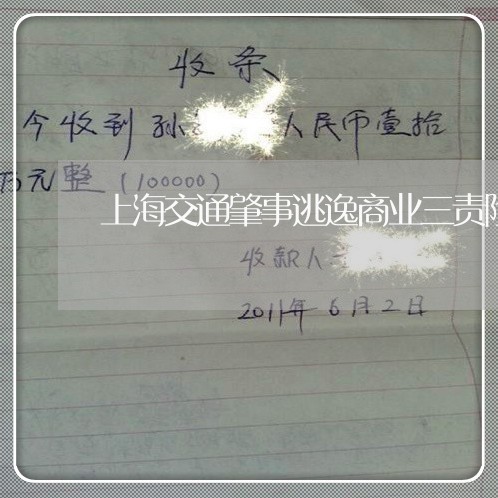 收条
今收到孙 人民币壹拾
万元整(100000)
上海交通肇事逃逸商业三责
收款人
2011年6月2日